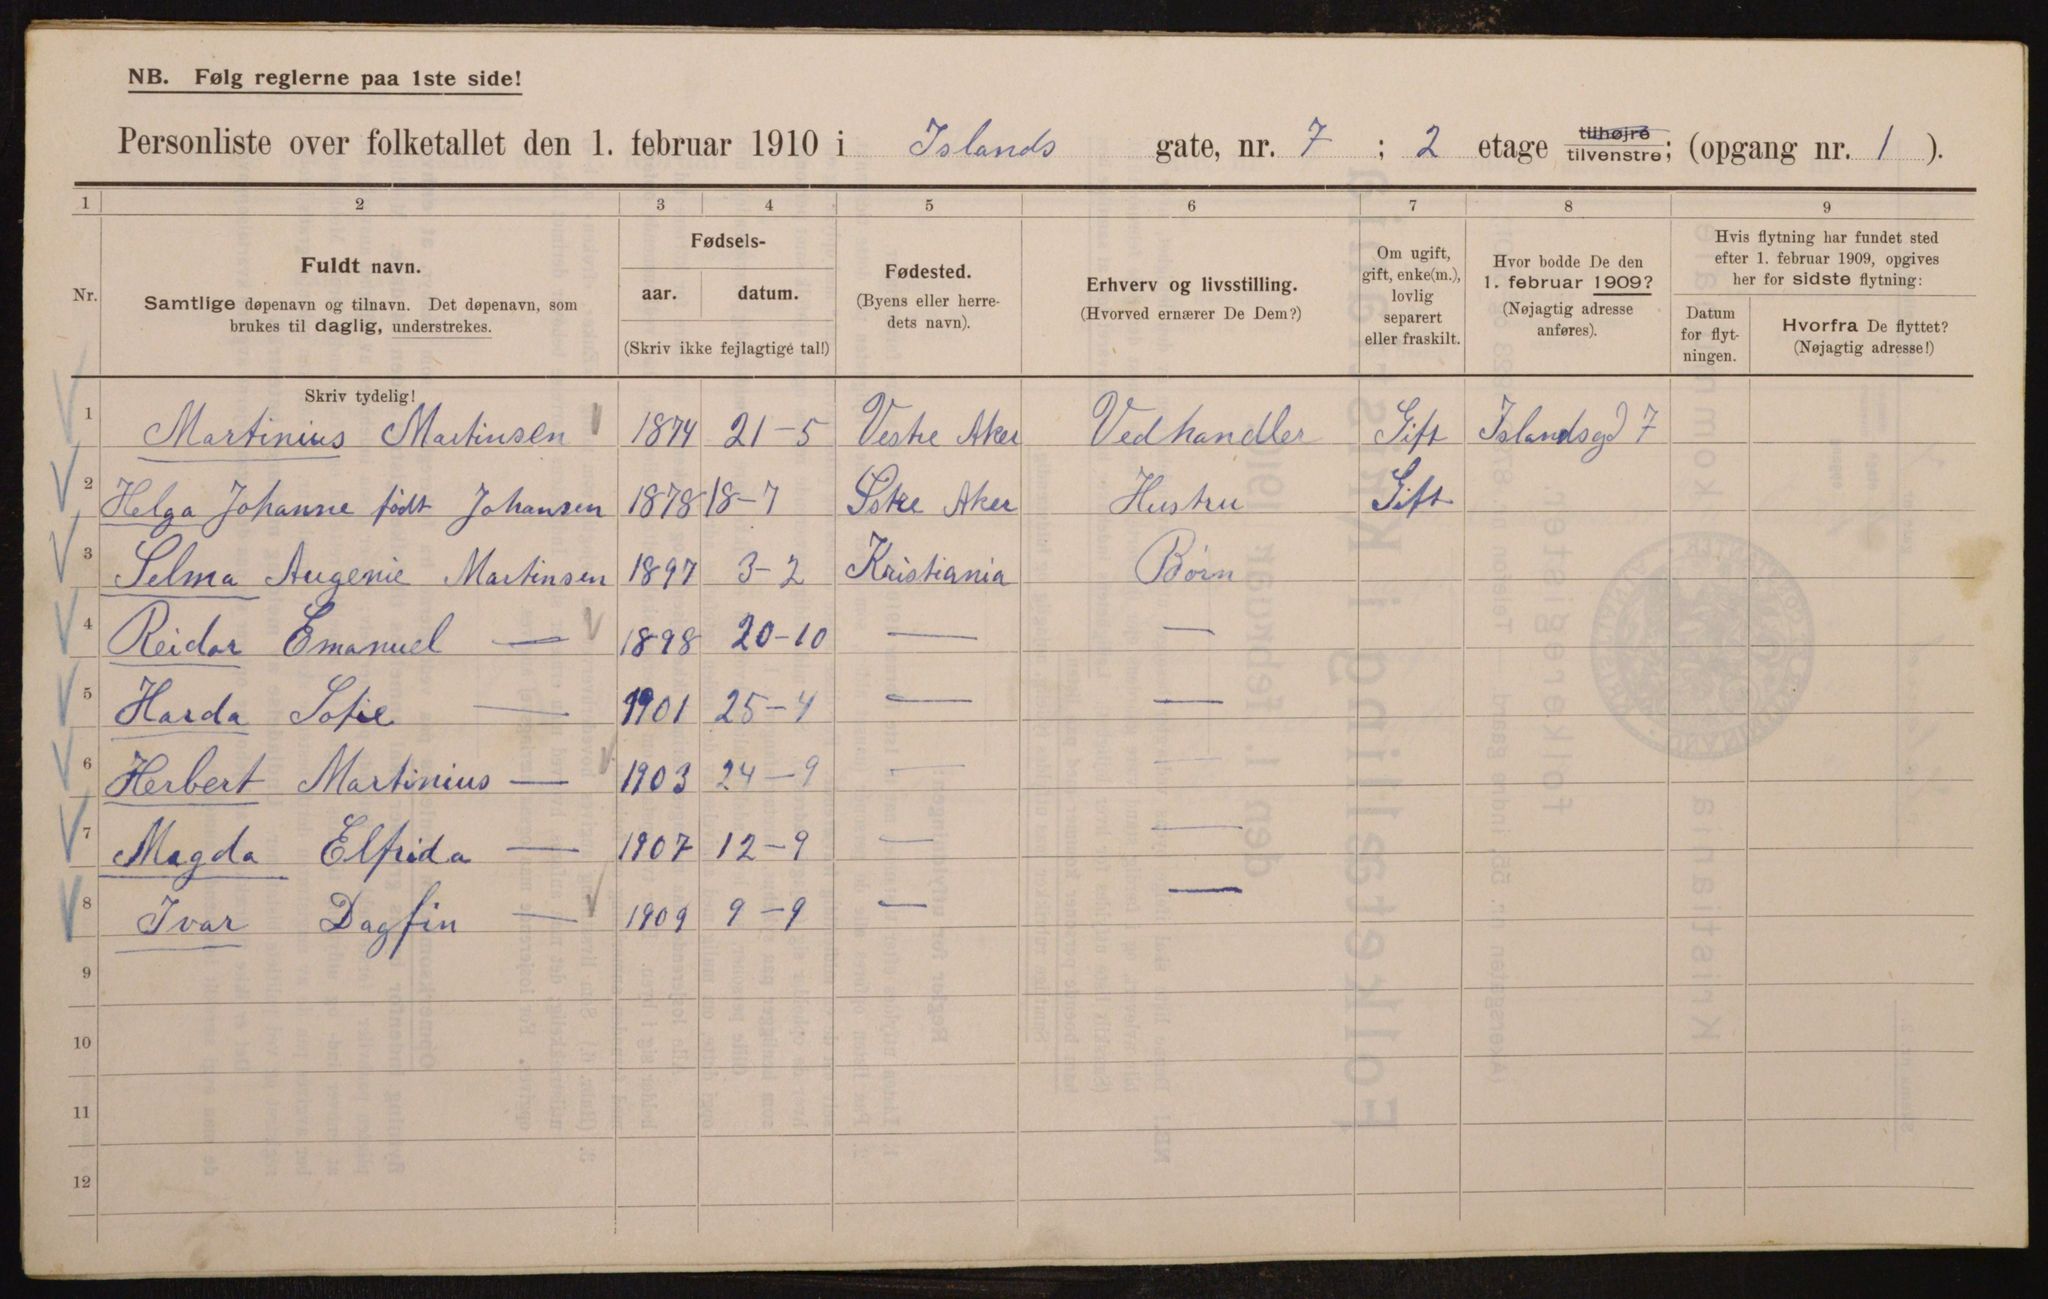 NB. Følg reglerne paa 1ste side!
Personliste over folketallet den 1. februar 1910 i Islands gate, nr. 7 ; 2 etage tilhøjre tilvenstre; (opgang nr. 1 ).
1 2 3 4 5 6 7 8 9
Nr.
Fuldt navn.
Samtlige døpenavn og tilnavn. Det døpenavn, som
brukes til daglig, understrekes.
Fødsels-
aar. datum.
(Skriv ikke fejlagtige tal!)
Fødested.
(Byens eller herre-
dets navn).
Erhverv og livsstilling.
(Hvorved ernærer De Dem?)
Om ugift,
gift, enke(m.),
lovlig
separert
eller fraskilt.
Hvor bodde De den
1. februar 1909?
(Nøjagtig adresse
anføres).
Hvis flytning har fundet sted
efter 1. februar 1909, opgives
her for sidste flytning:
Datum
for flyt-
ningen.
Hvorfra De flyttet?
(Nøjagtig adresse!)
Skriv tydelig!
1 Martinius Martinsen 1874 21-5 Vestre Aker Vedhandler Gift Islandsgd 7
2 Helga Johanne født Johansen 1878 18-7 Østre Aker Hustru Gift
3 Selma Augenie Martinsen 1897 3-2 Kristiania Børn
4 Reidar Emanuel — 1898 20-10 — —
5 Harda Sofie — 1901 25-4 — —
6 Herbert Martinius — 1903 24-9 — —
7 Magda Elfrida — 1907 12-9 — —
8 Ivar Dagfin — 1909 9-9 — —
9
10
11
12